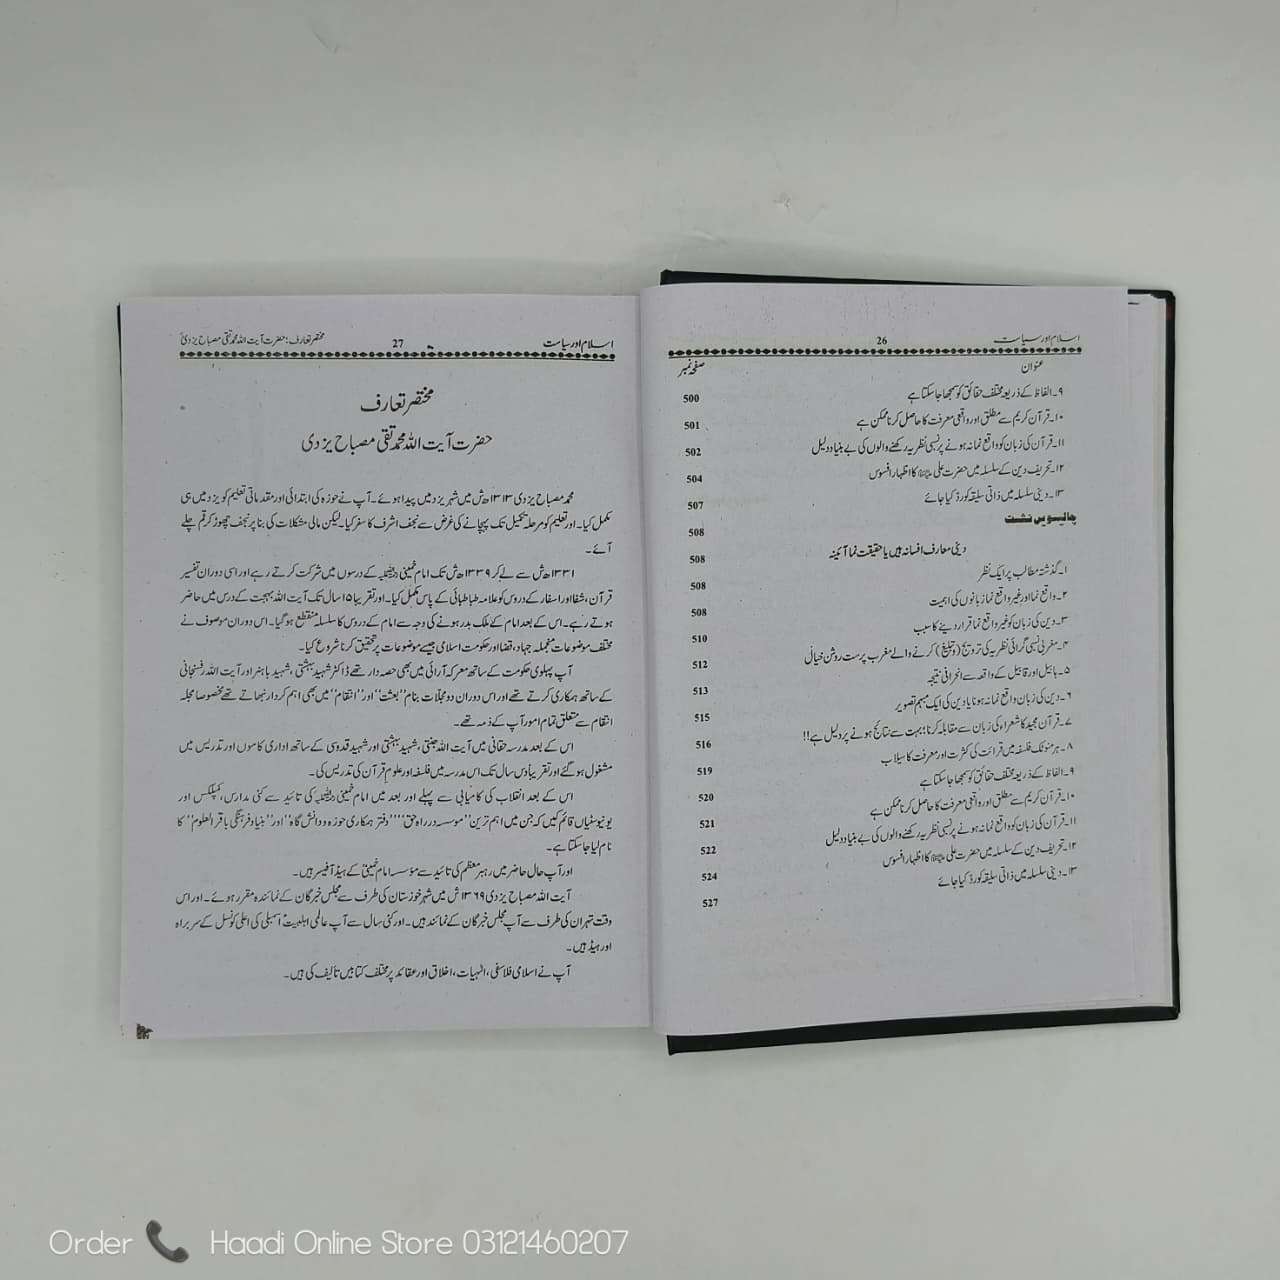 اسلام اور سیاست 26
عنوان صفحہ نمبر
۹۔ الفاظ کے ذریعہ مختلف حقائق کو سمجھا جاسکتا ہے 500
۱۰۔ قرآن کریم سے مطلق اور واقعی معرفت کا حاصل کرنا ممکن ہے 501
۱۱۔ قرآن کی زبان کو واقع نما نہ ہونے پر نسبی نظریہ رکھنے والوں کی بے بنیاد دلیل 502
۱۲۔ تحریف دین کے سلسلہ میں حضرت علی کا اظہار افسوس 504
۱۳۔ دینی سلسلہ میں ذاتی سلیقہ کو رد کیا جائے 507
چالیسویں نشست 508
دینی معارف افسانہ ہیں یا حقیقت نما آئینہ 508
۱۔ گذشتہ مطالب پر ایک نظر 508
۲۔ واقع نما اور غیر واقع نما زبانوں کی اہمیت 508
۳۔ دین کی زبان کو غیر واقع نما قرار دینے کا سبب 510
۴۔ مغربی نسبی گرائی نظریہ کی ترویج (و تبلیغ) کرنے والے مغرب پرست روشن خیالی 512
۵۔ ہابیل اور قابیل کے واقعہ سے انحرافی نتیجہ 513
۶۔ دین کی زبان واقع نما نہ ہونا یا دین کی ایک مبہم تصویر 515
۷۔ قرآن مجید کا شعراء کی زبان سے مقابلہ کرنا؛ بہت سے نتائج ہونے پر دلیل ہے!! 516
۸۔ ہرمنوٹک فلسفہ میں قرائت کی کثرت اور معرفت کا سیلاب 519
۹۔ الفاظ کے ذریعہ مختلف حقائق کو سمجھا جاسکتا ہے 520
۱۰۔ قرآن کریم سے مطلق اور واقعی معرفت کا حاصل کرنا ممکن ہے 521
۱۱۔ قرآن کی زبان کو واقع نما نہ ہونے پر نسبی نظریہ رکھنے والوں کی بے بنیاد دلیل 522
۱۲۔ تحریف دین کے سلسلہ میں حضرت علی کا اظہار افسوس 524
۱۳۔ دینی سلسلہ میں ذاتی سلیقہ کو رد کیا جائے 527
اسلام اور سیاست 27 مختصر تعارف: حضرت آیت اللہ محمد تقی مصباح یزدیؒ
مختصر تعارف
حضرت آیت اللہ محمد تقی مصباح یزدی
محمد مصباح یزدی ۱۳۱۳ھ ش میں شہر یزد میں پیدا ہوئے۔ آپ نے حوزہ کی ابتدائی اور مقدماتی تعلیم کو یزد میں ہی
مکمل کیا۔ اور تعلیم کو مرحلہ تکمیل تک پہچانے کی غرض سے نجف اشرف کا سفر کیا۔ لیکن مالی مشکلات کی بنا پر نجف چھوڑ کر قم چلے
آئے۔
۱۳۳۱ھ ش سے لے کر ۱۳۳۹ھ ش تک امام خمینی کے درسوں میں شرکت کرتے رہے اور اسی دوران تفسیر
قرآن، شفا اور اسفار کے دروس کو علامہ طباطبائی کے پاس مکمل کیا۔ اور تقریبا ۱۵ سال تک آیت اللہ بہجت کے درس میں حاضر
ہوتے رہے۔ اس کے بعد امام کے ملک بدر ہونے کی وجہ سے امام کے دروس کا سلسلہ منقطع ہو گیا۔ اس دوران موصوف نے
مختلف موضوعات منجملہ جہاد، قضا اور حکومت اسلامی جیسے موضوعات پر تحقیق کرنا شروع کیا۔
آپ پہلوی حکومت کے ساتھ معرکہ آرائی میں بھی حصہ دار تھے ڈاکٹر شہید بہشتی، شہید باہنر اور آیت اللہ رفسنجانی
کے ساتھ ہمکاری کرتے تھے اور اس دوران دو مجلات بنام ''بعثت'' اور ''انتقام'' میں بھی اہم کردار نبھاتے تھے مخصوصا مجلہ
انتقام سے متعلق تمام امور آپ کے ذمہ تھے۔
اس کے بعد مدرسہ حقانی میں آیت اللہ جنتی، شہید بہشتی اور شہید قدوسی کے ساتھ اداری کاموں اور تدریس میں
مشغول ہو گئے اور تقریباً دس سال تک اس مدرسہ میں فلسفہ اور علوم قرآن کی تدریس کی۔
اس کے بعد انقلاب کی کامیابی سے پہلے اور بعد میں امام خمینی کی تائید سے کئی مدارس، کمپلکس اور
یونیوسٹیاں قائم کیں کہ جن میں اہم ترین ''موسسہ در راہ حق'' ''دفتر ہمکاری حوزہ و دانش گاہ'' اور ''بنیاد فرہنگی باقر العلوم'' کا
نام لیا جا سکتا ہے۔
اور آپ حال حاضر میں رہبر معظم کی تائید سے مؤسسہ امام خمینیؒ کے ہیڈ آفیسر ہیں۔
آیت اللہ مصباح یزدی ۱۳۶۹ ش میں شہر خوزستان کی طرف سے مجلس خبرگان کے نمائندہ مقرر ہوئے۔ اور اس
وقت تہران کی طرف سے آپ مجلس خبرگان کے نمائند ہیں۔ اور کئی سال سے آپ عالمی اہلبیتؑ اسمبلی کی اعلی کونسل کے سربراہ
اور ہیڈ ہیں۔
آپ نے اسلامی فلاسفی، الٰہیات، اخلاق اور عقائد پر مختلف کتابیں تألیف کی ہیں۔
Order Haadi Online Store 03121460207